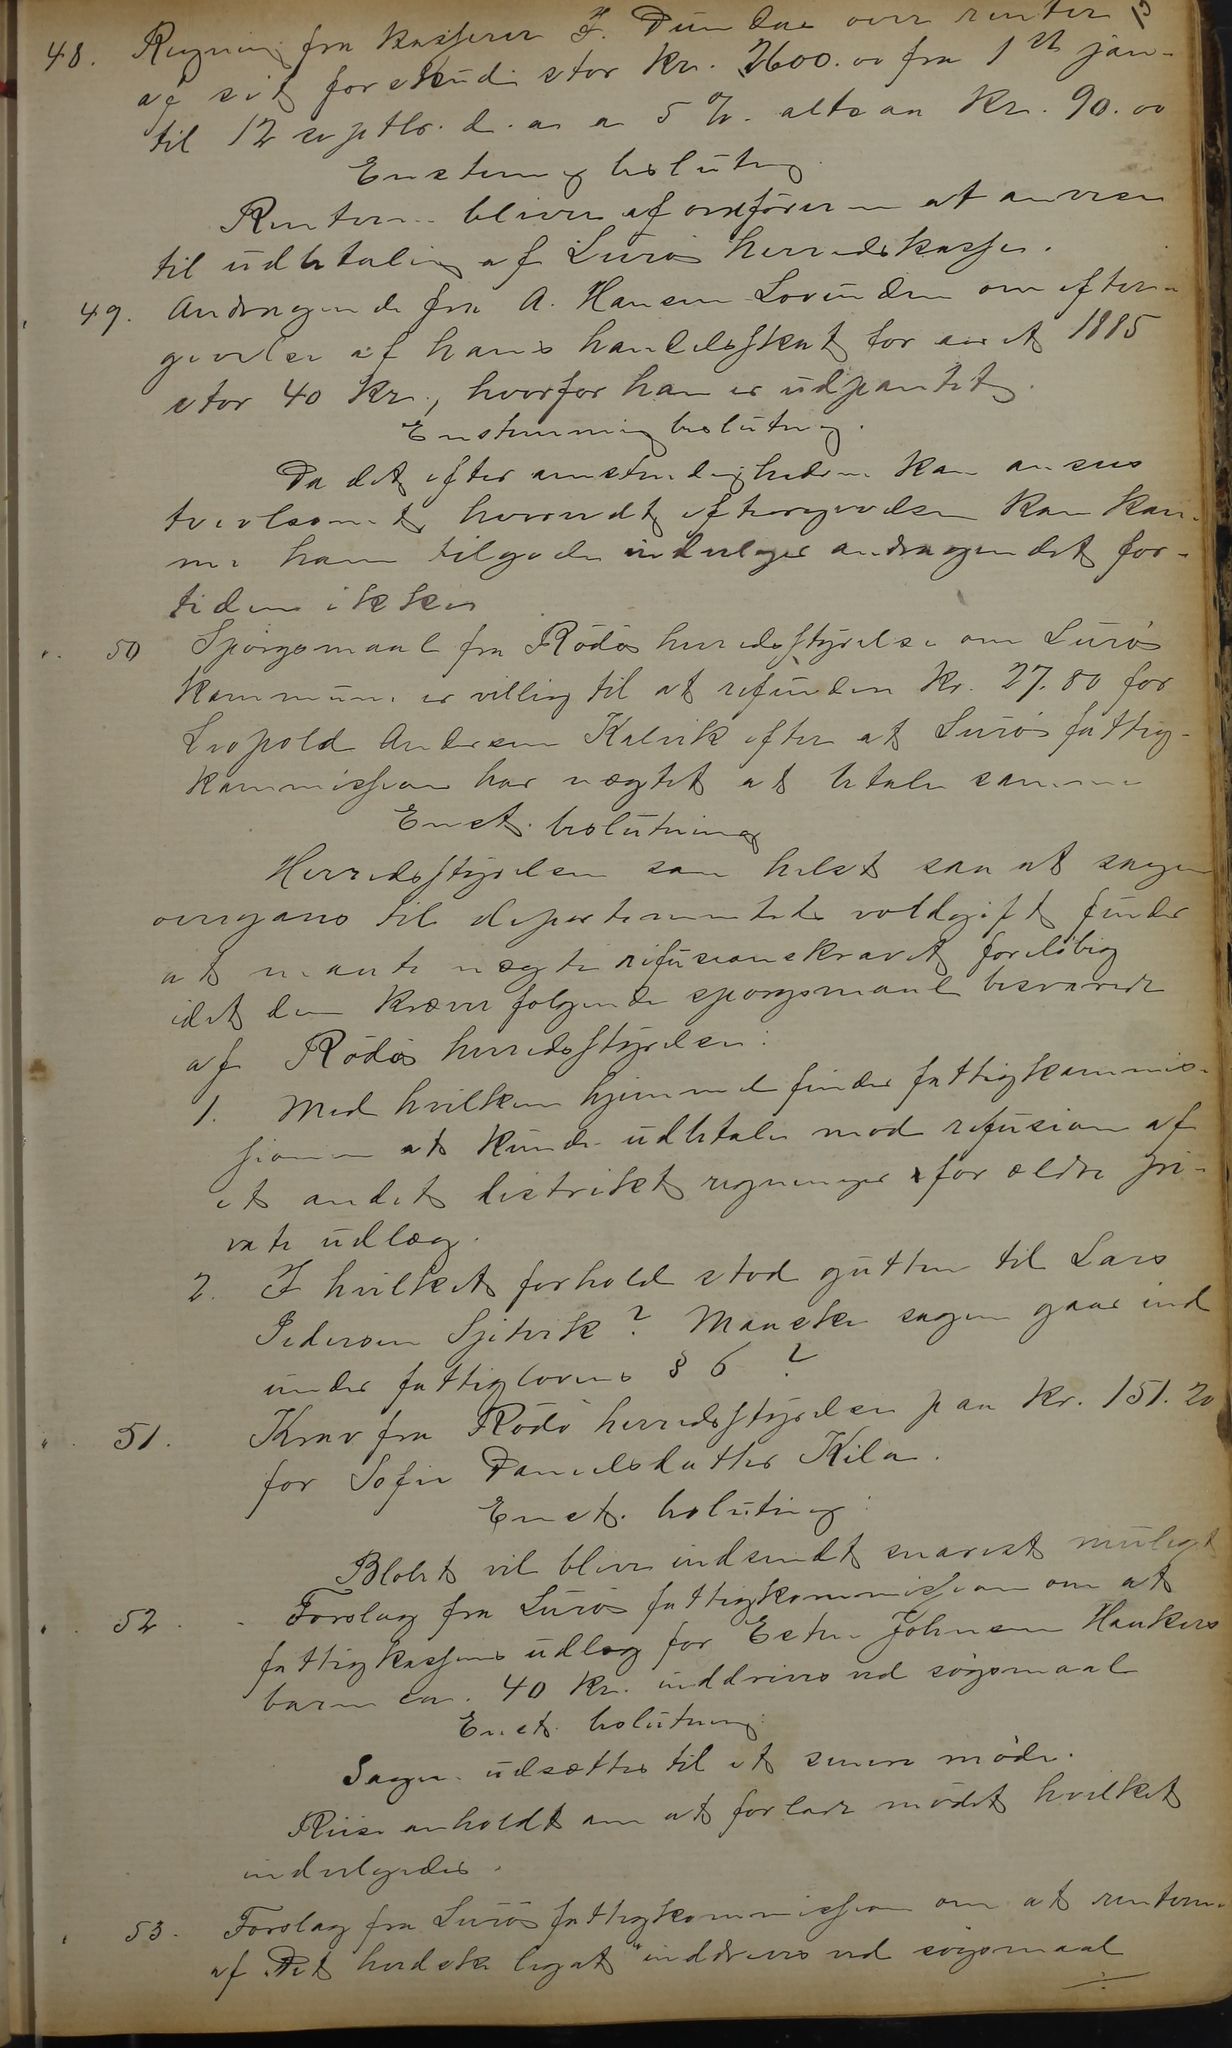 48. Regning fra kasserer I. Dundas over renter
af sit forskud stor kr. 2600.00 fra 1st jan-
til 12 septbr. d. a. a 5 %. altsaa kr. 90.00
Enstemig beslutng
Renterne bliver af ordføreren at anvise
til udbetaling af Lurø herredskasse.
49. Andragende fra A. Hansen Lovunden om efter-
givelse af hans handelsskat for aaret 1885
stor 40 kr., hvorfor han er udpantet.
Enstemmig beslutning.
Da det efter omstendighederne kan ansees
tvivlsomt hvorvidt eftergivelsen kan kom-
me ham tilgode indvilges andragendet for-
tiden ikke
50 Spørgsmaal fra Rødøs herredsstyrelse om Lurøs
kommune er villig til at refundere kr. 27.80 for
Leopold Andersen Kalvik efter at Lurøs fattig-
kommission har nægtet at betale samme
Enst. beslutning
Herredsstyrelsen som helst saa at sagen
overgaves til departementets voldgift finder
at maatte nægte refusionskravet foreløbig
idet den kræver følgende spørgsmaal besvarede
af Rødøs herredsstyrelse:
1. Med hvilken hjemmel finder fattigkommis-
sionen at kunde udbetale mod refusion af
et andet distrikt regninger for ældre pri-
vate udlæg.
2. I hvilket forhold stod gutten til Lars
Pedersen Sjetvik? Maaske sagen gaar ind
under fattiglovens § 6 ?
51. Krav fra Rødø herredsstyrelse paa kr. 151.20
for Sofie Danielsdatter Kila.
Enst. beslutning:
Beløbet vil blive indsendt snarest muligt
52. Forslag fra Lurøs fattigkommission om at
fattigkassens udlæg for Johnsen
barn ca. 40 kr. inddrives ved søgsmaal
Enst. beslutning:
Sagen udsættes til et senere møde.
Riise anholdt om at forlade mødet hvilket
indvilgedes.
53. Forslag fra Lurøs fattigkommission om at renterne
af Det legat" inddrives ved søgsmaal